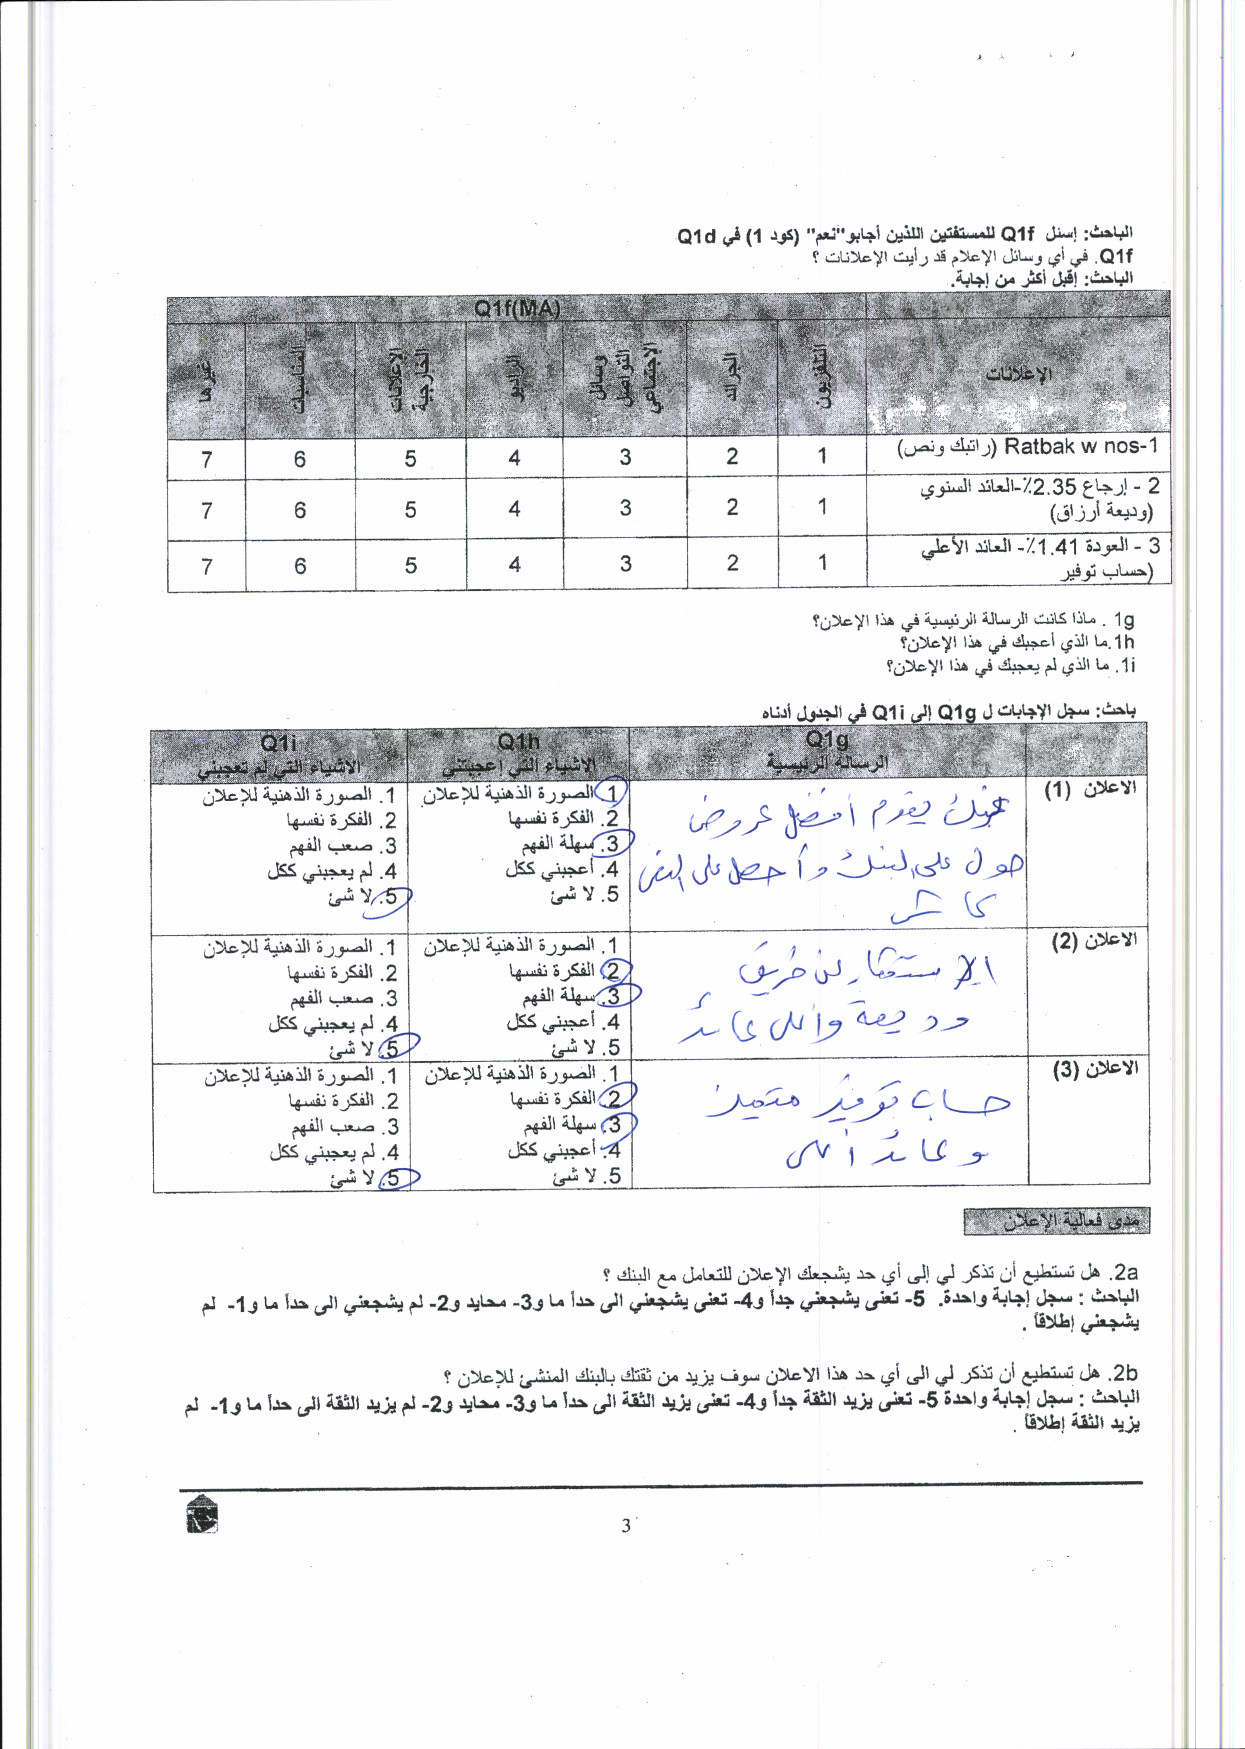 الباحث: إسئل Q1f للمستفتين اللذين أجابو"نعم" (كود 1) في Q1d
Q1f. في أي وسائل الإعلام قد رأيت الإعلانات ؟
الباحث: إقبل أكثر من إجابة.
Q1f(MA)
الإعلانات
التلفزيون
الجرائد
وسائل التواصل الإجتماعي
الراديو
الإعلانات الخارجية
المناسبات
غيرها
1-Ratbak w nos (راتبك ونص) 1 2 3 4 5 6 7
2 - إرجاع 2.35٪-العائد السنوي
(وديعة أرزاق) 1 2 3 4 5 6 7
3 - العودة 1.41٪- العائد الأعلي
(حساب توفير 1 2 3 4 5 6 7
1g . ماذا كانت الرسالة الرئيسية في هذا الإعلان؟
1h.ما الذي أعجبك في هذا الإعلان؟
1i. ما الذي لم يعجبك في هذا الإعلان؟
باحث: سجل الإجابات ل Q1g إلى Q1i في الجدول أدناه
Q1g
الرسالة الرئيسية
Q1h
الاشياء التي اعجبتني
Q1i
الاشياء التي لم تعجبني
الاعلان (1)
يقدم أفضل عروض
حول على البنك وأحصل على النص
كاش
1. الصورة الذهنية للإعلان
2. الفكرة نفسها
3. سهلة الفهم
4. أعجبني ككل
5. لا شئ
1. الصورة الذهنية للإعلان
2. الفكرة نفسها
3. صعب الفهم
4. لم يعجبني ككل
5. لا شئ
الاعلان (2)
الاستثمار عن طريق
وديعة وأعلى عائد
1. الصورة الذهنية للإعلان
2. الفكرة نفسها
3. سهلة الفهم
4. أعجبني ككل
5. لا شئ
1. الصورة الذهنية للإعلان
2. الفكرة نفسها
3. صعب الفهم
4. لم يعجبني ككل
5. لا شئ
الاعلان (3)
حساب توفير متميز
و عائد أعلى
1. الصورة الذهنية للإعلان
2. الفكرة نفسها
3. سهلة الفهم
4. أعجبني ككل
5. لا شئ
1. الصورة الذهنية للإعلان
2. الفكرة نفسها
3. صعب الفهم
4. لم يعجبني ككل
5. لا شئ
مدى فعالية الإعلان
2a. هل تستطيع أن تذكر لي إلى أي حد يشجعك الإعلان للتعامل مع البنك ؟
الباحث : سجل إجابة واحدة. 5- تعنى يشجعني جداً و4- تعنى يشجعني الى حداً ما و3- محايد و2- لم يشجعني الى حداً ما و1- لم
يشجعني إطلاقاً .
2b. هل تستطيع أن تذكر لي الى أي حد هذا الاعلان سوف يزيد من ثقتك بالبنك المنشئ للإعلان ؟
الباحث : سجل إجابة واحدة 5- تعنى يزيد الثقة جداً و4- تعنى يزيد الثقة الى حداً ما و3- محايد و2- لم يزيد الثقة الى حداً ما و1- لم
يزيد الثقة إطلاقاً .
3